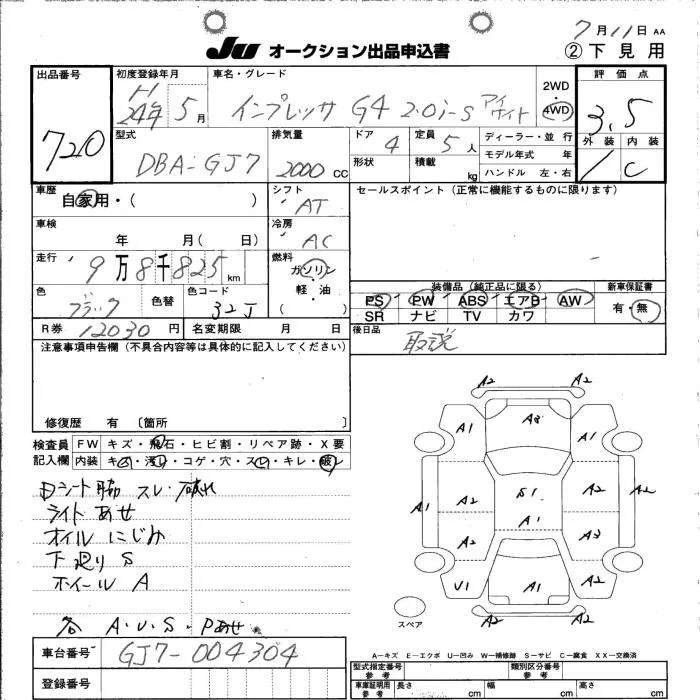 7月11日 AA
JU オークション出品申込書
② 下見用
出品番号
720
初度登録年月
H
24年 5月
車名・グレード
インプレッサ G4 2.0i-S アイサイト
2WD・4WD
評価点
3.5
外装 内装
/ C
型式
DBA-GJ7
排気量
2000 CC
ドア 4
形状
定員 5人
積載 kg
ディーラー・並行
モデル年式 年
ハンドル 左・右
車歴
自家用・( )
シフト
AT
セールスポイント (正常に機能するものに限ります)
車検
年 月( 日)
冷房
AC
走行
9万8千825km
燃料
ガソリン・軽油・( )
色
ブラック
色替
色コード
32J
装備品 (純正品に限る)
PS PW ABS エアB AW
SR ナビ TV カワ
新車保証書
有・無
R券 12030円
名変期限 月 日
後日品
取説
注意事項申告欄 (不具合内容等は具体的に記入してください)
修復歴 有 〔箇所 〕
検査員記入欄
FW キズ・飛石・ヒビ割・リペア跡・X要
内装 キズ・汚れ・コゲ・穴・スレ・キレ・破レ
Dシート脇 スレ・破れ
ライトあせ
オイルにじみ
下廻り S
ホイール A
各 A・U・S・Pあせ
A2 A2
A1 A3 A1
A1 A2 S1 A2 A2
A1
A2 A3
U1 A1 A2
A2 A2
スペア
A－キズ E－エクボ U－凹み W－補修跡 S－サビ C－腐食 XX－交換済
車台番号
GJ7-004304
登録番号
型式指定番号 参考
類別区分番号 参考
車庫証明用 参考 長さ cm 幅 cm 高さ cm